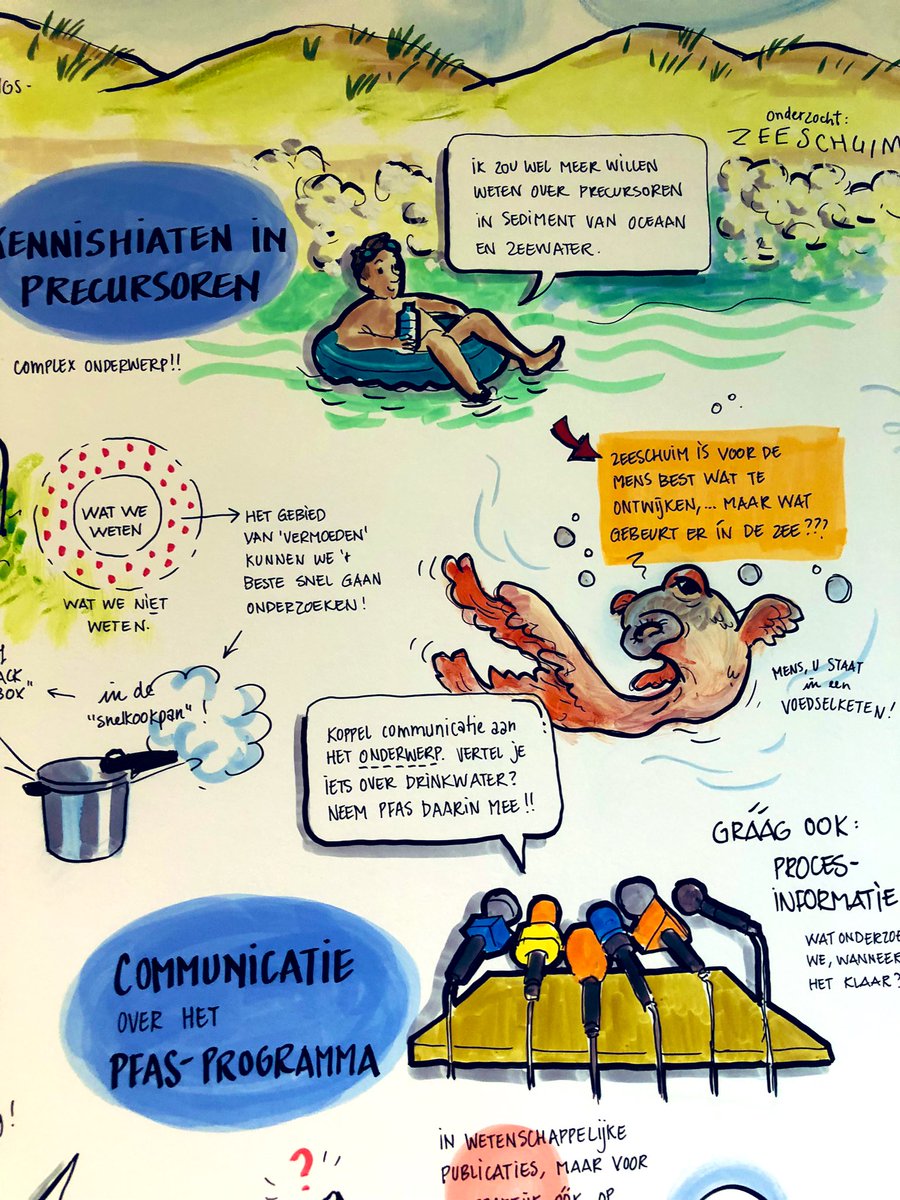 onderzocht:
ZEESCHUIM
IK ZOU WEL MEER WILLEN
WETEN OVER PRECURSOREN
IN SEDIMENT VAN OCEAAN
EN ZEEWATER.
KENNISHIATEN IN
PRECURSOREN
COMPLEX ONDERWERP!!
ZEESCHUIM IS VOOR DE
MENS BEST WAT TE
ONTWIJKEN,... MAAR WAT
GEBEURT ER ÍN DE ZEE???
WAT WE
WETEN
WAT WE NIET
WETEN.
HET GEBIED
VAN 'VERMOEDEN'
KUNNEN WE 't
BESTE SNEL GAAN
ONDERZOEKEN!
in de
"snelkookpan"!
BOX"
MENS, U STAAT
in een
VOEDSELKETEN!
KOPPEL communicatie aan
HET ONDERWERP. VERTEL JE
IETS OVER DRINKWATER?
NEEM PFAS DAARIN MEE!!
GRÁÁG OOK:
PROCES-
INFORMATIE
WAT ONDERZOE
WE, WANNEER
HET KLAAR?
COMMUNICATIE
OVER HET
PFAS-PROGRAMMA
IN WETENSCHAPPELIJKE
PUBLICATIES, MAAR VOOR
ÓÓK OP
?